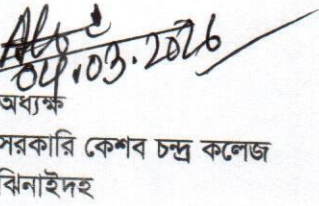 04.03.2026
অধ্যক্ষ
সরকারি কেশব চন্দ্র কলেজ
ঝিনাইদহ